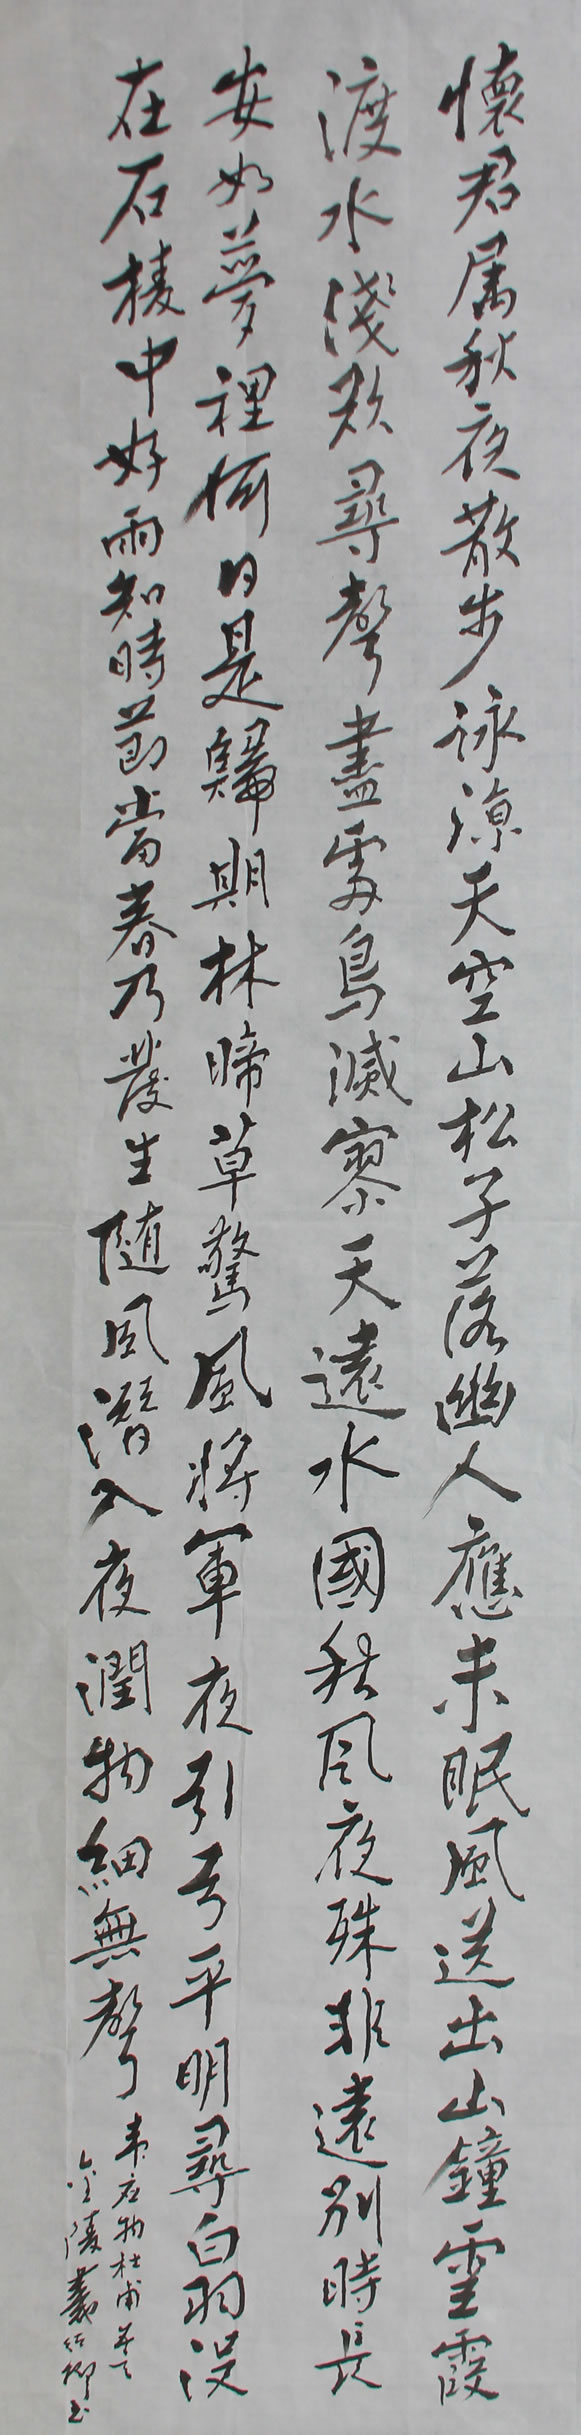 懷君属秋夜散步詠涼天空山松子落幽人應未眠風送出山鐘雲霞
渡水淺欲尋聲盡處鳥滅寥天遠水國秋風夜殊非遠別時長
安如夢裡何日是歸期林暗草驚風將軍夜引弓平明尋白羽没
在石棱中好雨知時節當春乃發生隨風潛入夜潤物細無聲
韦应物杜甫
金陵